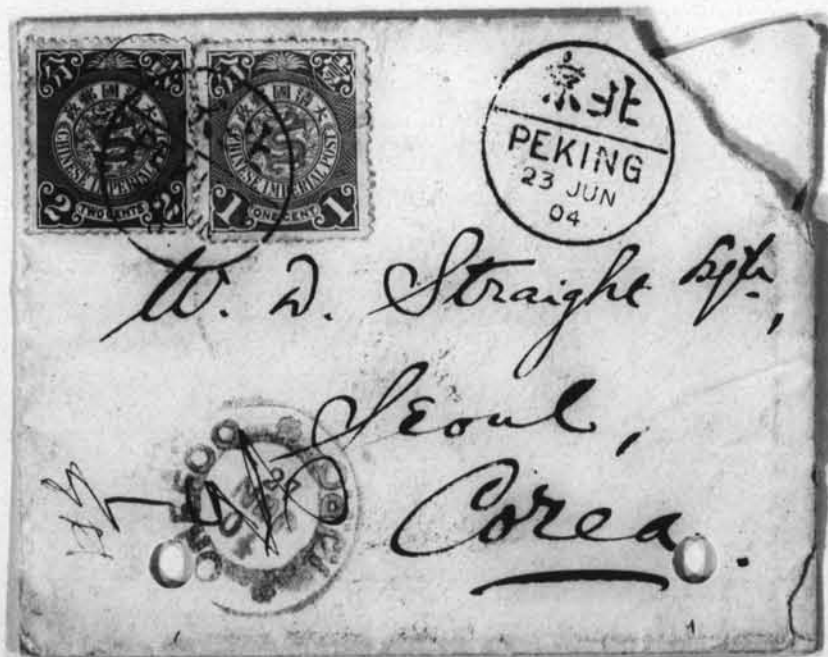 分 貳
大清國郵政
CHINESE IMPERIAL POST
2 TWO CENTS 2
分 壹
大清國郵政
CHINESE IMPERIAL POST
1 ONE CENT 1
京北
PEKING
23 JUN
04
W. D. Straight Esqre,
Seoul,
Corea.